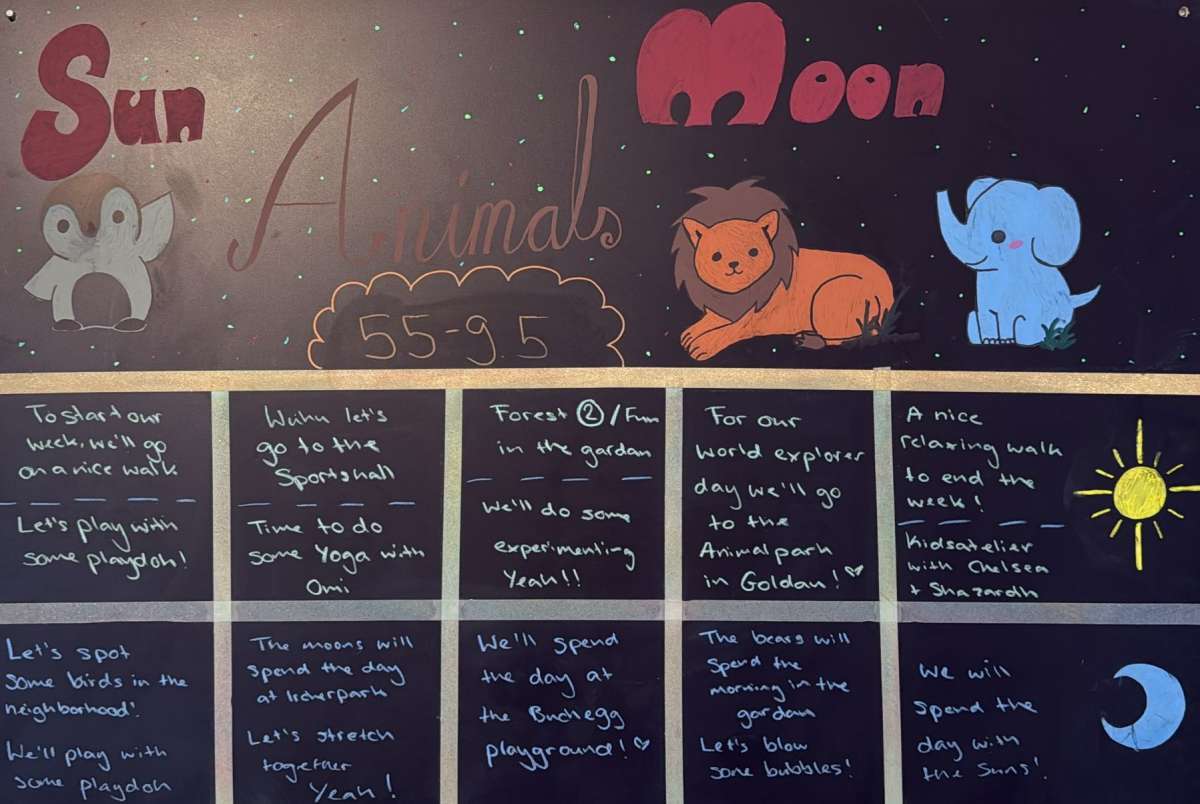 Sun
Moon
Animals
55-9.5
To start our
week, we'll go
on a nice walk
Let's play with
some playdoh!
Wuhu let's
go to the
Sportshall
Time to do
some Yoga with
Omi
Forest ② / Fun
in the gardan
We'll do some
experimenting
Yeah!!
For our
world explorer
day we'll go
to the
Animalpark
in Goldau!♡
A nice
relaxing walk
to end the
week!
Kidsatelier
with Chelsea
+ Shazardh
Let's spot
some birds in the
neighborhood!
We'll play with
some playdoh
The moons will
spend the day
at Irchelpark
Let's stretch
together
Yeah!
We'll spend
the day at
the Buchegg
playground!♡
The bears will
spend the
morning in the
gardan
Let's blow
some bubbles!
We will
spend the
day with
the Suns!